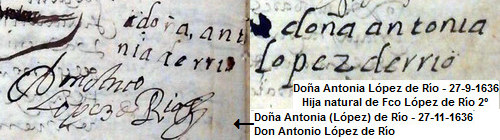 doña, ant
nia de rrio
Don Anto
Lopez de Rio
doña antonia
lopez de rrio
Doña Antonia López de Río - 27-9-1636
Hija natural de Fco López de Río 2º
Doña Antonia (López) de Río - 27-11-1636
Don Antonio López de Río